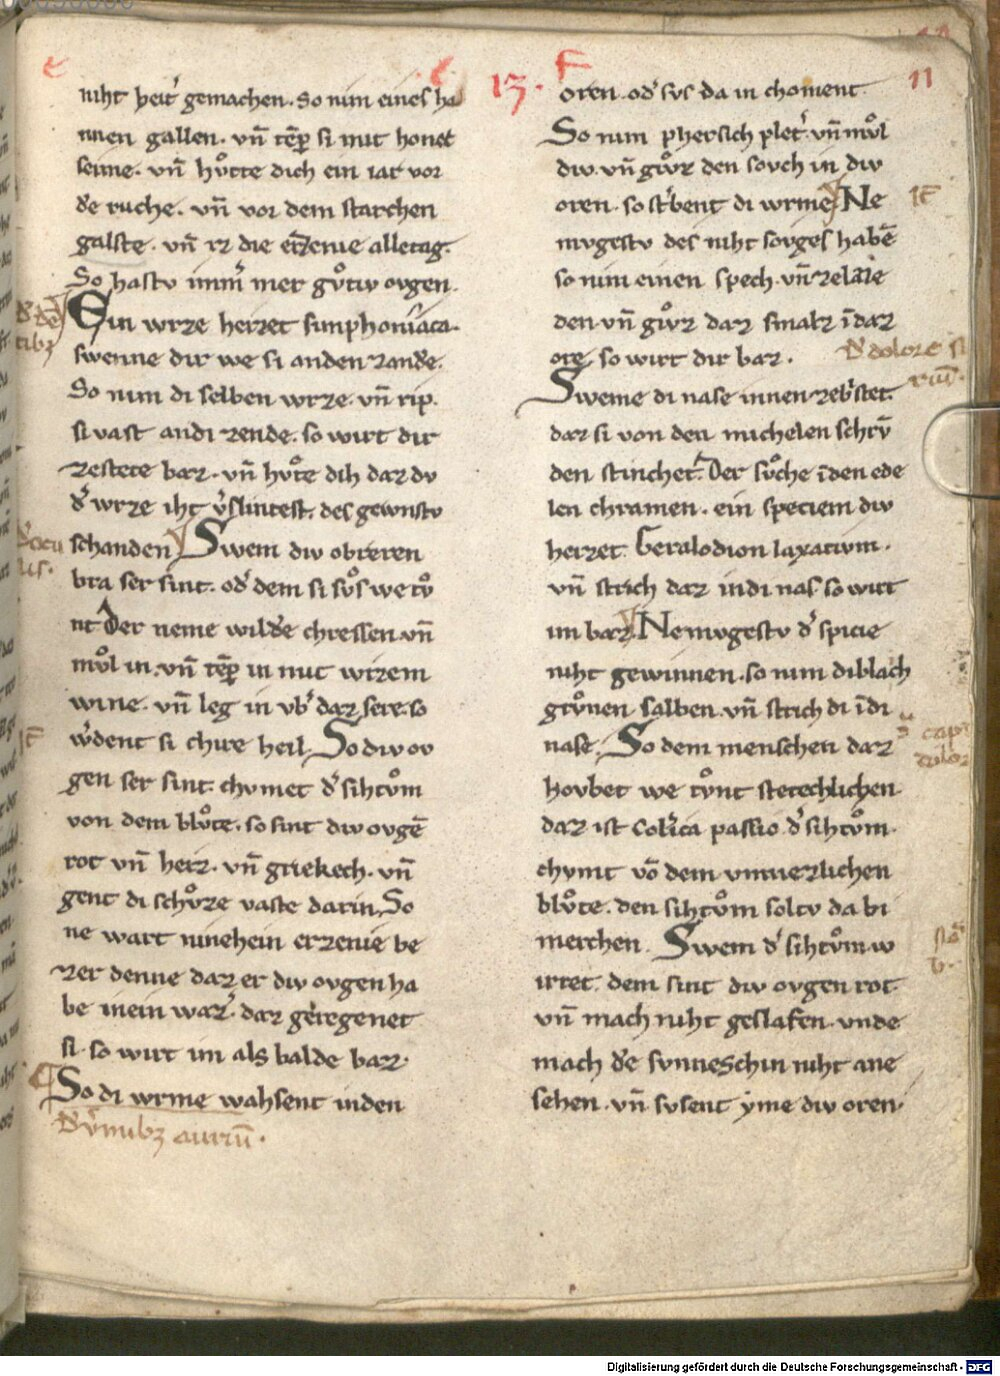 e
e
niht peit͛ gemachen. So nim eines ha
nnen gallen. vn̄ tēꝑ si mit honet
seime. vn̄ hvͦtte dich ein iar vor
d͛e ruche. vn̄ vor dem starchen
galste. vn̄ iz die ercenie alletag.
So hastv imm͛ mer gvͦtiv ovgen.
Ein wrze heizet simphoniaca.
swenne dir we si anden zand͛e.
So nim di selben wrze. vn̄ rip.
si vast andi zende. so wirt dir
zestete baz. vn̄ hvͦte dih daz dv
d͛ wrze iht v͛slintest. des gewnstv
schanden Swem div obreren
bra ser sint. od͛ dem si svͦs we tvͦ
nt Der neme wild͛e chressen vn̄
mvͦl in. vn̄ tēꝑ in mit wizem
wine. vn̄ leg in vb͛ daz sere. so
w͛dent si chire heil. So div ov
gen ser sint. chvmet d͛ sihtvͦm
von dem blvͦte. so sint div ovgē
rot vn̄ heiz. vn̄ griekech. vn̄
gent di schvͦze vaste darin. So
ne wart ninehein erzenie be
zer denne daz er div ovgen ha
be mein waz͛. daz ger͛egenet
si. so wirt im als balde baz.
So di wrme wahsent inden
d͛ v͛mibꝫ auriū.
13.
F
11
oren. od͛ svs da in choment
So nim phersich plet͛. vn̄ mvͦl
div. vn̄ givͦz den sovch in div
oren. so st͛bent di wrme Ne
mvgestv des niht sovges habē
so nim einen spech. vn̄ zelaze
den. vn̄ givͦz daz smalz īdaz
ore. so wirt dir baz.
Sweme di nase innen zeb͛stet.
daz si von den michelen schrv̄
den stinchet. Der svͦche īden ede
len chramen. ein speciem div
heizet. Geralodion laxatium.
vn̄ strich daz indi nas. so wirt
im baz. Ne mvgestv d͛ spicie
niht gewinnen. so nim diblach
grvͦnen salben. vn̄ strich di īdi
nase. So dem menschen daz
hovbet we tvͦnt stetechlichen
daz ist Col͛ica passio. d͛ sihtvͦm.
chvmt vō dem vnuerzlichen
blvͦte. den sihtvͦm soltv da bi
merchen. Swem d͛ sihtvͦm w
irret. dem sint div ovgen rot.
vn̄ mach niht geslafen. vnde
mach d͛e svnneschin niht ane
sehen. vn̄ svsent yme div oren.
Digitalisierung gefördert durch die Deutsche Forschungsgemeinschaft - DFG